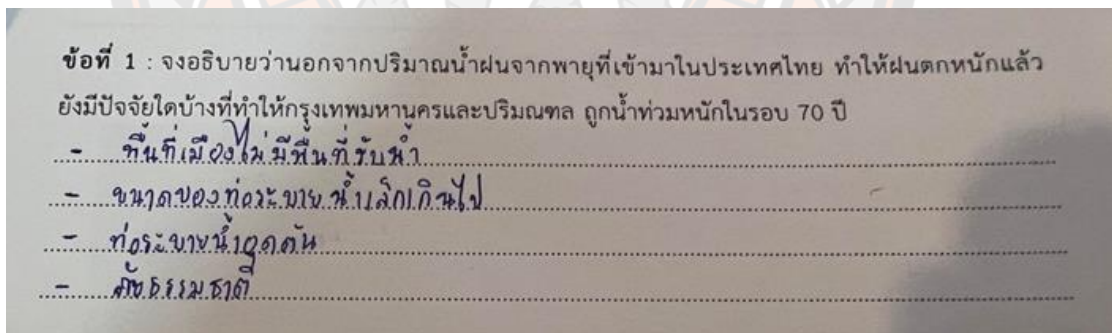 ข้อที่ 1 : จงอธิบายว่านอกจากปริมาณน้ำฝนจากพายุที่เข้ามาในประเทศไทย ทำให้ฝนตกหนักแล้ว
ยังมีปัจจัยใดบ้างที่ทำให้กรุงเทพมหานครและปริมณฑล ถูกน้ำท่วมหนักในรอบ 70 ปี
- พื้นที่เมืองไม่มีพื้นที่รับน้ำ
- ขนาดของท่อระบายน้ำเล็กเกินไป
- ท่อระบายน้ำอุดตัน
- ภัยธรรมชาติ